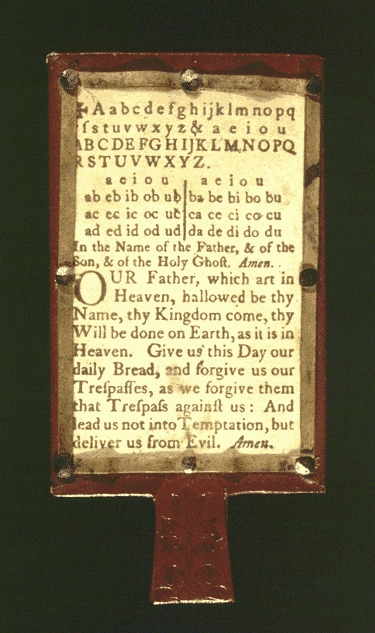 ✠ Aabcdefghijklmnopq
rſstuvwxyz& a e i o u
ABCDEFGHIJKLMNOPQ
RSTUVWXYZ.
a e i o u | a e i o u
ab eb ib ob ub | ba be bi bo bu
ac ec ic oc uc | ca ce ci co cu
ad ed id od ud | da de di do du
In the Name of the Father, & of the
Son, & of the Holy Ghoſt. Amen.
OUR Father, which art in
Heaven, hallowed be thy
Name, thy Kingdom come, thy
Will be done on Earth, as it is in
Heaven. Give us this Day our
daily Bread, and forgive us our
Treſpaſſes, as we forgive them
that Treſpaſs againſt us: And
lead us not into Temptation, but
deliver us from Evil. Amen.